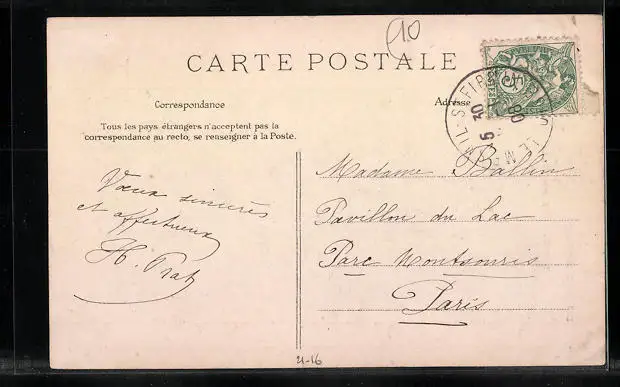 10
CARTE POSTALE
Correspondance
Adresse
Tous les pays étrangers n'acceptent pas la
correspondance au recto, se renseigner à la Poste.
Vœux sincères
et affectueux
H. Prat
Madame Ballin
Pavillon du Lac
Parc Montsouris
Paris
21-16